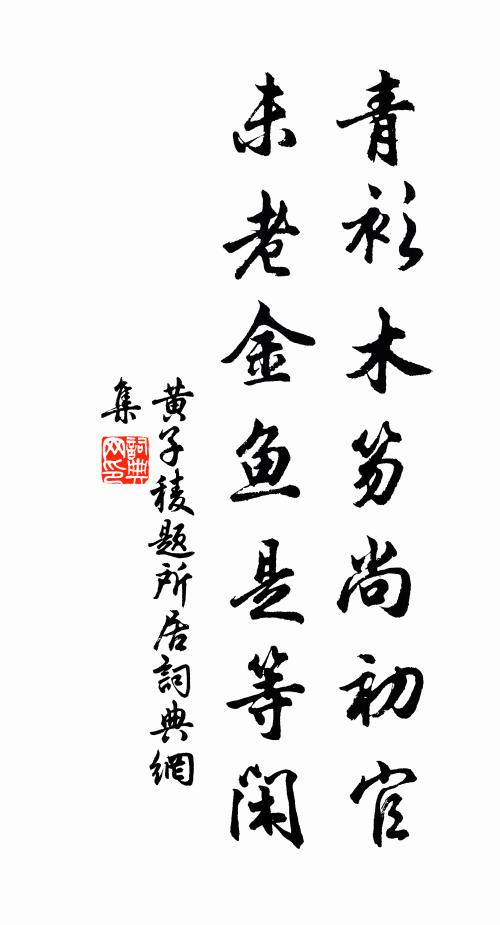 青衫木笏尚初官
未老金鱼是等閑
黄子稜题所居詞典網
集
詞典网印